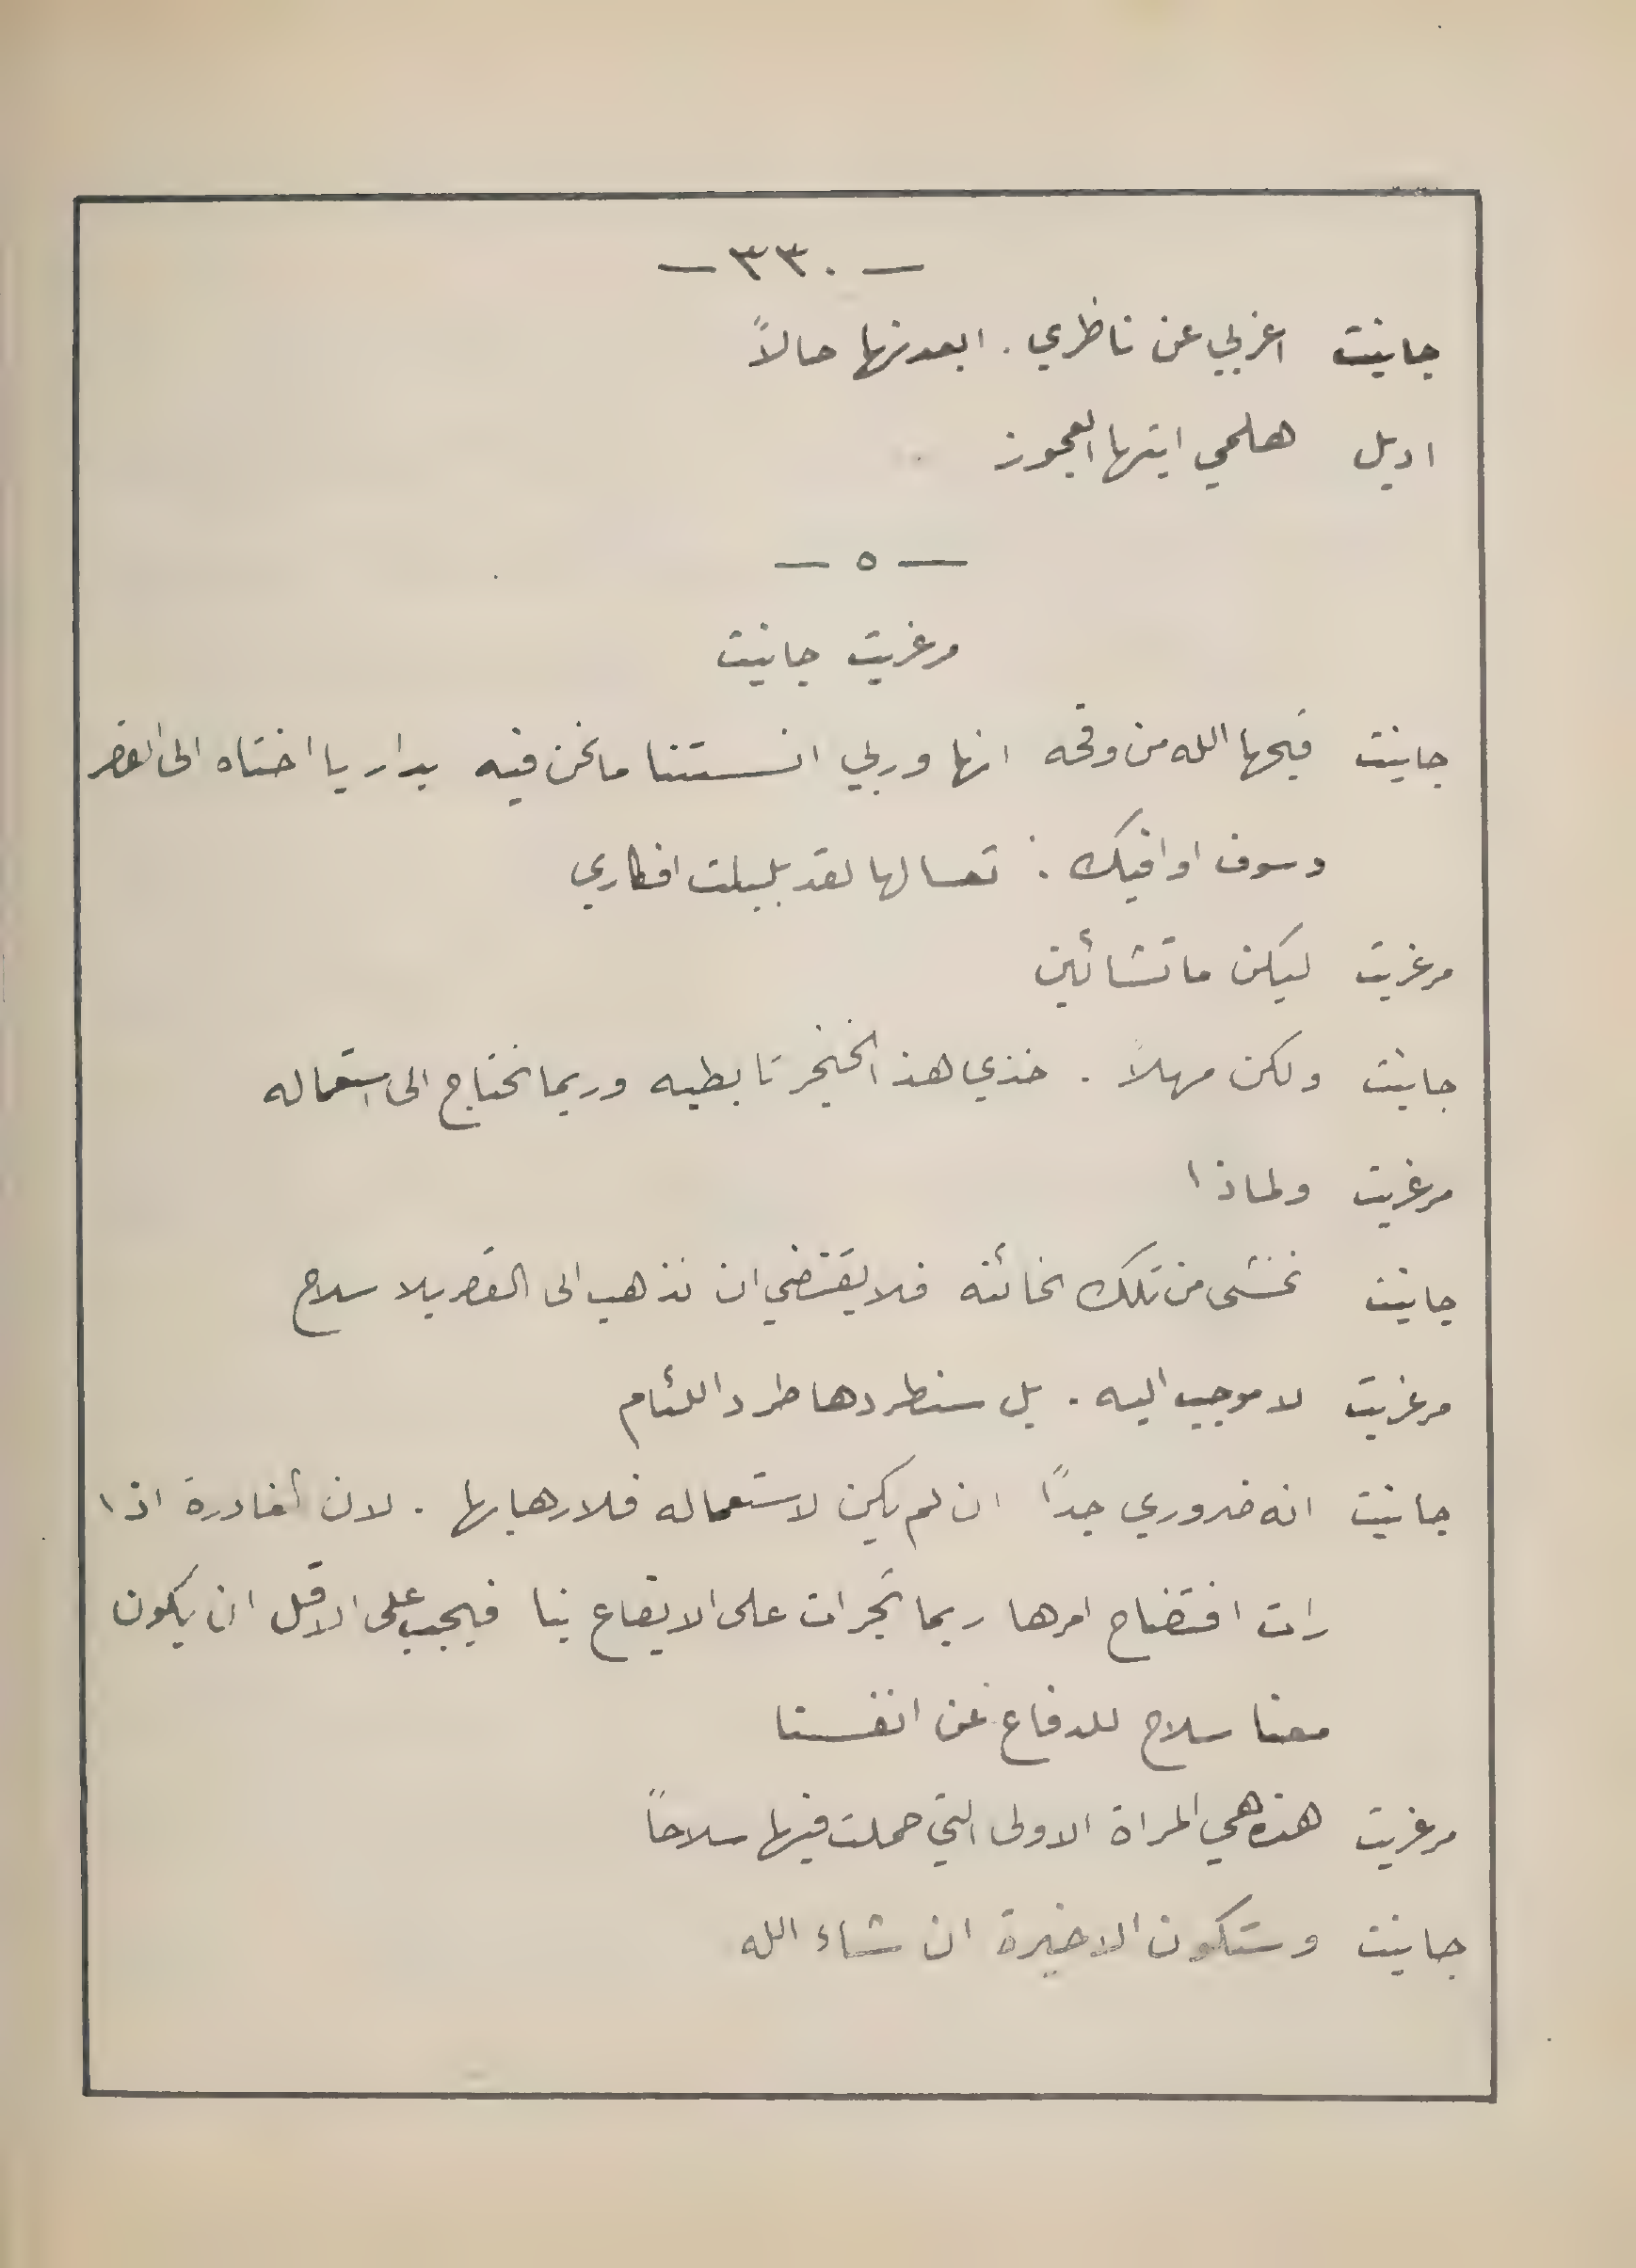 — ٣٣٠ —
جانيت اغربي عن ناظري . ابعدنها حالاً
اديل هلمي ايتها العجوز
— ٥ —
مرغريت جانيت
جانيت قبحها الله من وقحه انها وربي انستنا ما نحن فيه بدار يا اختاه الى القصر
وسوف اوافيك : تعسا لها لقد بلبلت افكاري
مرغريت ليكن ما تشائين
جانيت ولكن مهلاً . خذي هذ الخنجر تابطيه وربما نحتاج الى استعماله
مرغريت ولماذا
جانيت نخشى من تلك الخائنه فلا يقتضي ان نذهب الى القصر بلا سلاح
مرغريت لا موجب اليه . بل سنطردها طرد اللئام
جانيت انه ضروري جداً ان لم يكن لاستعماله فلارهابها . لان الغادرة اذا
رات افتضاح امرها ربما تجرات على الايقاع بنا فيجب على الاقل ان يكون
معنا سلاح للدفاع عن انفسنا
مرغريت هذه هي المراة الاولى التي حملت فيها سلاحاً
جانيت وستكون الاخيرة ان شاء الله